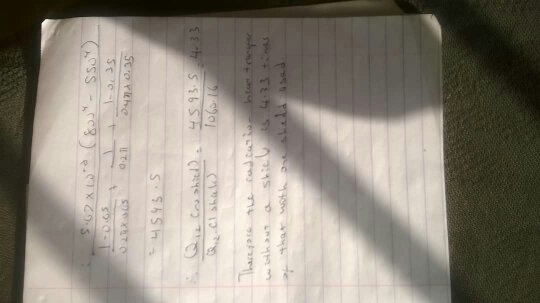 ∴ 5.67 × 10⁻⁸ (800⁴ - 550⁴)
1 - 0.65 + 1 + 1 - 0.35
0.2π × 0.65 0.2π 0.4π × 0.35
= 4593.5
∴ Q₁₂ (no shield) = 4593.5 = 4.33
Q₁₂ (1 shield) 1060.16
Therefore the radiation heat transfer
without a shield is 4.33 times
of that with one shield used